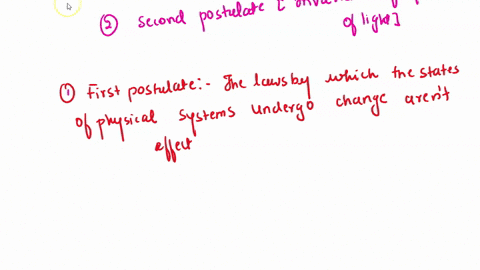 ② second postulate [
of light]
① First postulate:- The laws by which the states
of physical systems undergo change aren't
effect